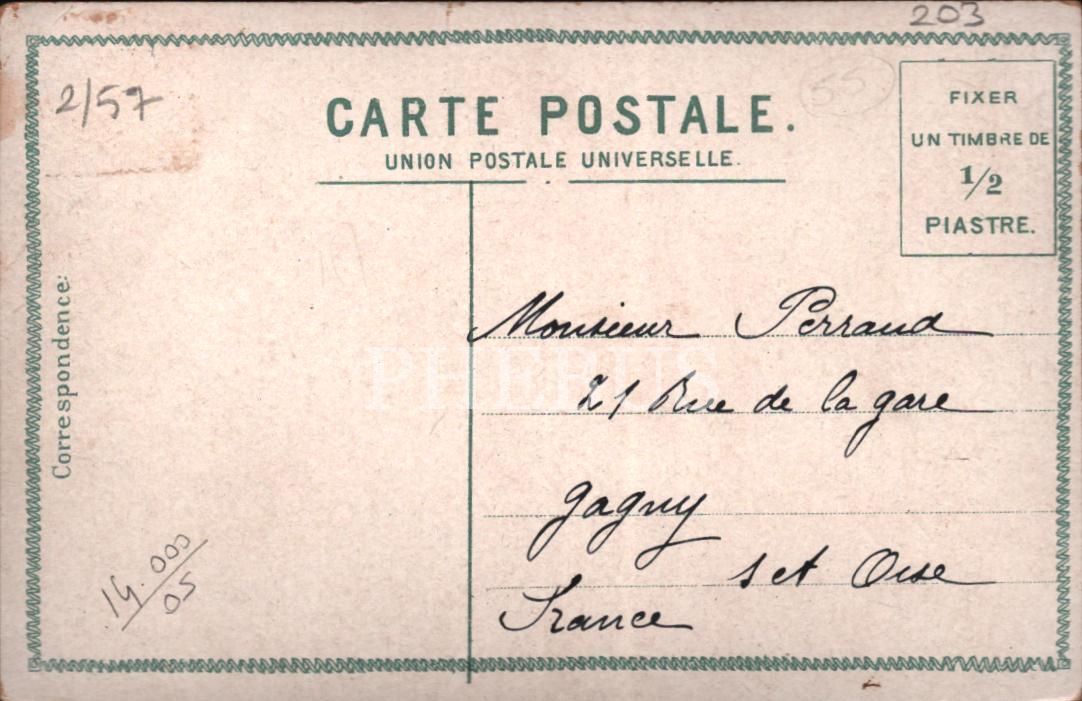 203
2/57
55
CARTE POSTALE.
UNION POSTALE UNIVERSELLE.
FIXER
UN TIMBRE DE
1/2
PIASTRE.
Correspondence:
Monsieur Perraud
21 Rue de la gare
Gagny
S et Oise
France
14.000
05
PHEBUS